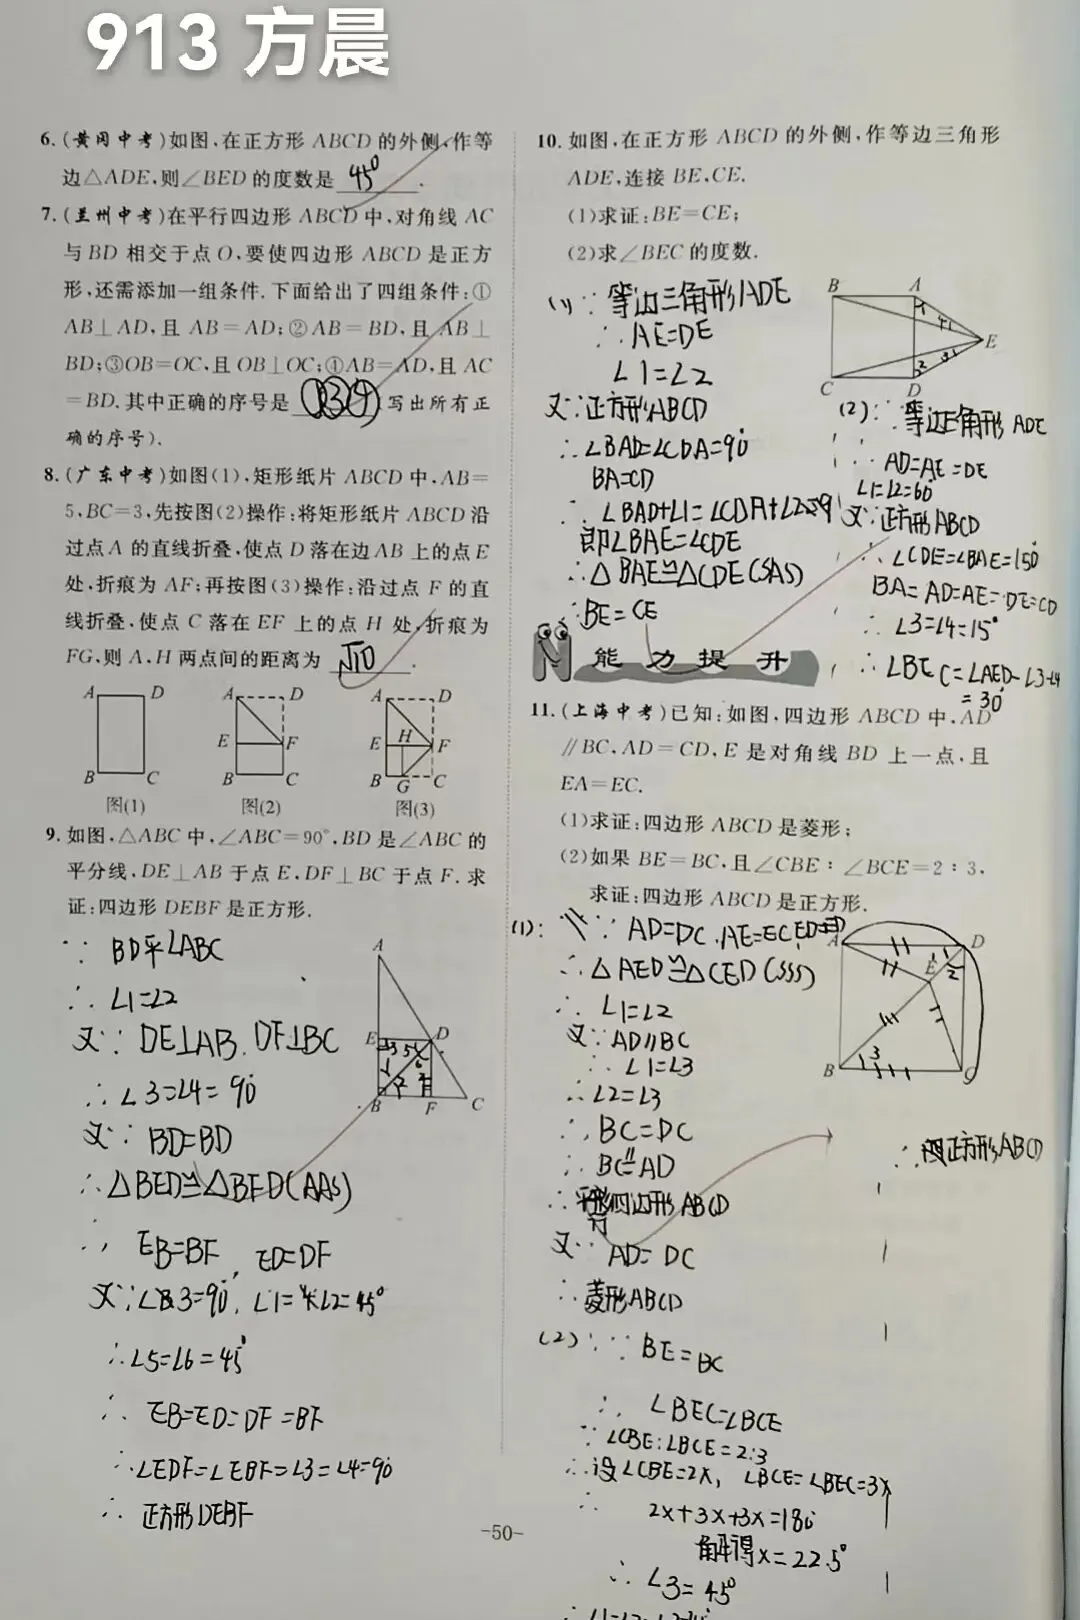 913 方晨
6.(黄冈中考)如图,在正方形 ABCD 的外侧,作等
边△ADE,则∠BED 的度数是 45° .
7.(兰州中考)在平行四边形 ABCD 中,对角线 AC
与 BD 相交于点 O,要使四边形 ABCD 是正方
形,还需添加一组条件.下面给出了四组条件:①
AB⊥AD,且 AB=AD;②AB=BD,且 AB⊥
BD;③OB=OC,且 OB⊥OC;④AB=AD,且 AC
=BD.其中正确的序号是 ①③④ 写出所有正
确的序号).
8.(广东中考)如图(1),矩形纸片 ABCD 中,AB=
5,BC=3,先按图(2)操作:将矩形纸片 ABCD 沿
过点A 的直线折叠,使点 D 落在边 AB 上的点E
处,折痕为 AF;再按图(3)操作:沿过点 F 的直
线折叠,使点 C 落在 EF 上的点 H 处,折痕为
FG,则 A、H 两点间的距离为 √10 .
A D A D A D
E F E H F
B C B C B G C
图(1) 图(2) 图(3)
9.如图,△ABC 中,∠ABC=90°,BD 是∠ABC 的
平分线,DE⊥AB 于点 E,DF⊥BC 于点 F.求
证:四边形 DEBF 是正方形.
∵ BD平∠ABC
∴ ∠1=∠2
又∵ DE⊥AB. DF⊥BC
∴ ∠3=∠4=90°
又∵ BD=BD
∴△BED≌△BFD(AAS)
∴ EB=BF, ED=DF
∴∠5=∠6=45°
∴ EB=ED=DF=BF
∴∠EDF=∠EBF=∠3=∠4=90°
∴ 正方形DEBF
A
E D
B F C
10.如图,在正方形 ABCD 的外侧,作等边三角形
ADE,连接 BE、CE.
(1)求证:BE=CE;
(2)求∠BEC 的度数.
B A
E
C D
(1) ∵等边三角形ADE
∴AE=DE
∠1=∠2
又∵正方形ABCD
∴∠BAD=∠CDA=90°
BA=CD
即∠BAE=∠CDE
∴△BAE≌△CDE(SAS)
∴BE=CE
(2)∵等边三角形ADE
∴AD=AE=DE
∠1=∠2=60°
又∵正方形ABCD
∴∠CDE=∠BAE=150°
BA=AD=AE=DE=CD
∴∠3=∠4=15°
∴∠BEC=∠AED-∠3-∠4
=30°
能力提升
11.(上海中考)已知:如图,四边形 ABCD 中,AD
∥BC,AD=CD,E 是对角线 BD 上一点,且
EA=EC.
(1)求证:四边形 ABCD 是菱形;
(2)如果 BE=BC,且∠CBE∶∠BCE=2∶3,
求证:四边形 ABCD 是正方形.
A D
E
B C
(1): ∵ AD=DC.AE=EC,ED=ED
∴△AED≌△CED(SSS)
∴ ∠1=∠2
又∵AD∥BC
∴∠1=∠3
∴∠2=∠3
∴BC=DC
∴BC=AD
∴平行四边形ABCD
又∵ AD=DC
∴菱形ABCD
(2):∵BE=BC
∴ ∠BEC=∠BCE
∵∠CBE:∠BCE=2:3
∴设∠CBE=2x, ∠BCE=∠BEC=3x
∴ 2x+3x+3x=180°
解得x=22.5°
∴ ∠3=45°
正方形ABCD
-50-